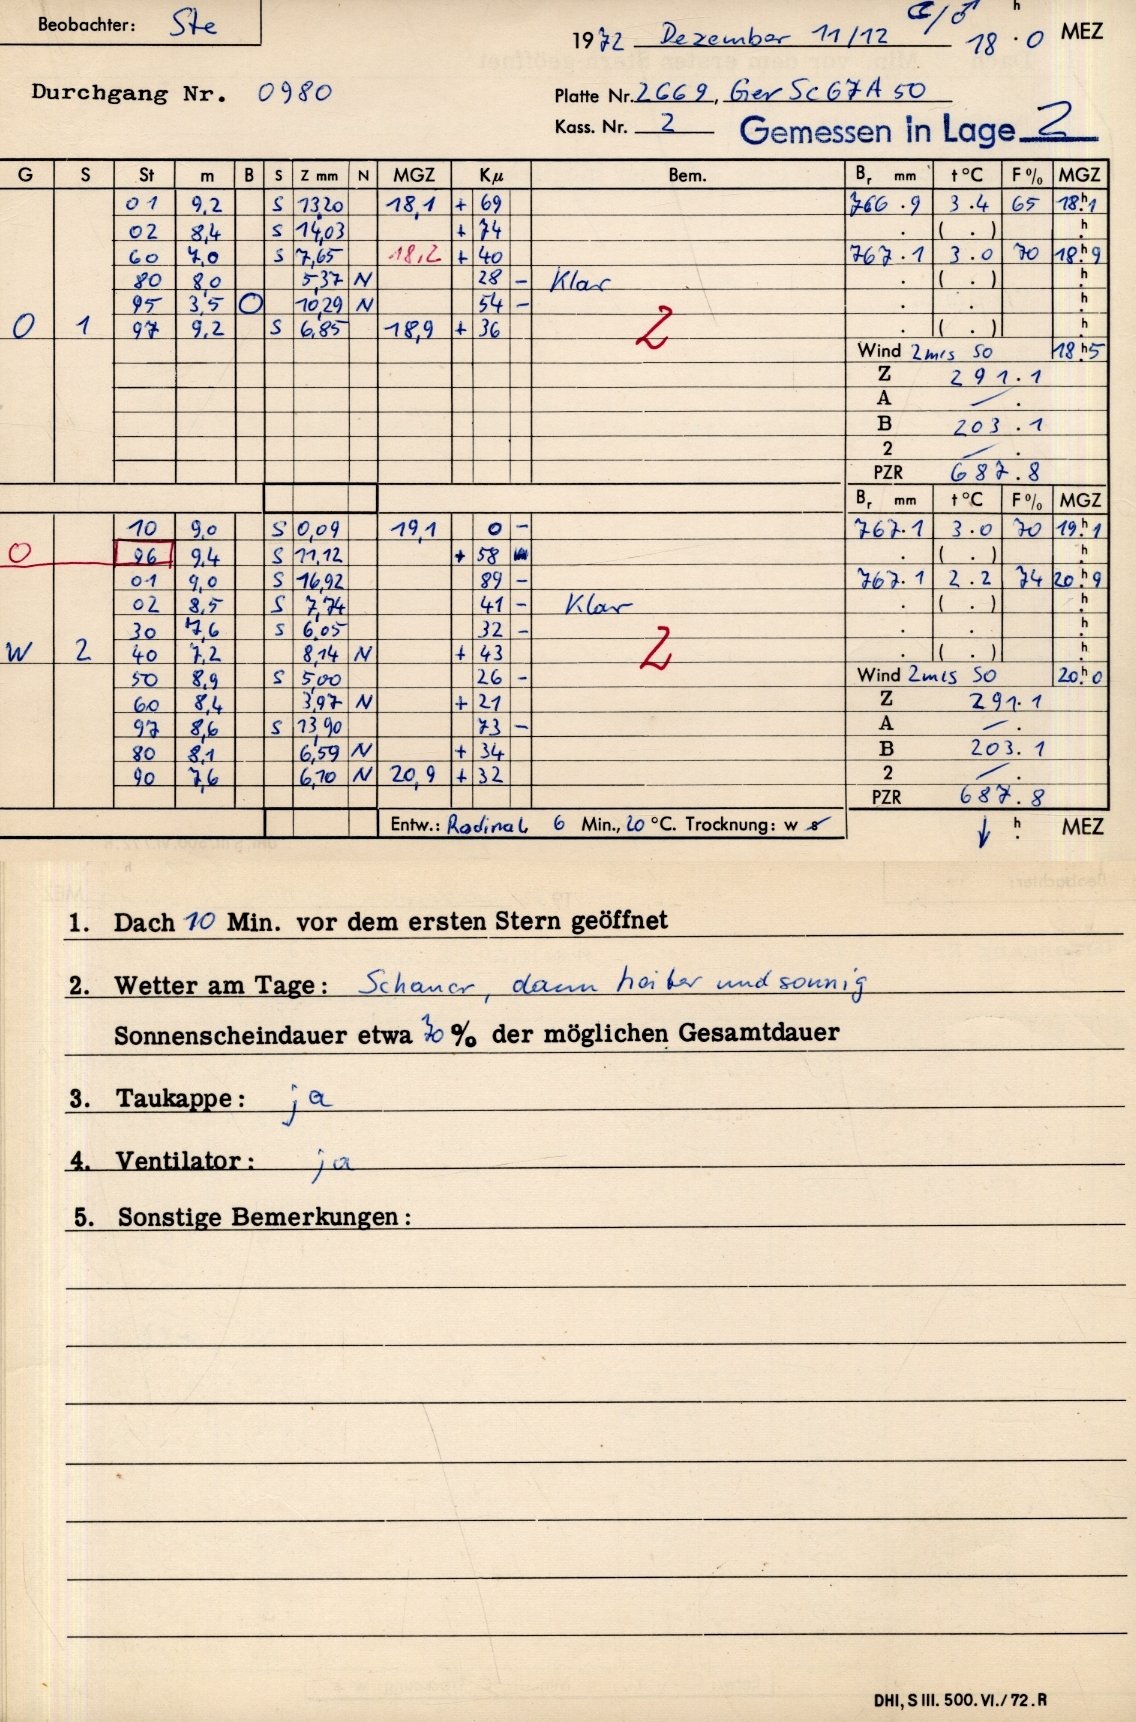 Beobachter: Ste
1972 Dezember 11/12 ☾/♂ 18h.0 MEZ
Durchgang Nr. 0980
Platte Nr. 2669, Ger Sc 67 A 50
Kass. Nr. 2 Gemessen in Lage 2
G S St m B S Z mm N MGZ Kμ Bem. Br mm t °C F % MGZ
01 9,2 S 13,20 18,1 + 69 766.9 3.4 65 18h.1
02 8,4 S 14,03 + 74 . ( . ) h.
60 7,0 S 7,65 18,2 + 40 767.1 3.0 70 18h.9
80 8,0 5,37 N 28 - Klar . ( . ) h.
95 3,5 O 10,29 N 54 - . . h.
O 1 97 9,2 S 6,85 18,9 + 36 2 . ( . ) h.
Wind 2m/s SO 18h.5
Z 291.1
A — .
B 203.1
2 — .
PZR 687.8
Br mm t °C F % MGZ
10 9,0 S 0,09 19,1 0 - 767.1 3.0 70 19h.1
O 96 9,4 S 11,12 + 58 . ( . ) h.
01 9,0 S 16,92 89 - 767.1 2.2 74 20h.9
02 8,5 S 7,74 41 - Klar . ( . ) h.
30 7,6 S 6,05 32 - . . h.
W 2 40 7,2 8,14 N + 43 2 . ( . ) h.
50 8,9 S 5,00 26 - Wind 2m/s SO 20h.0
60 8,4 3,97 N + 21 Z 291.1
97 8,6 S 13,90 73 - A — .
80 8,1 6,59 N + 34 B 203.1
90 7,6 6,10 N 20,9 + 32 2 — .
PZR 687.8
Entw.: Rodinal 6 Min., 20 °C. Trocknung: w s ↓ h. MEZ
1. Dach 10 Min. vor dem ersten Stern geöffnet
2. Wetter am Tage: Schauer, dann heiter und sonnig
Sonnenscheindauer etwa 70 % der möglichen Gesamtdauer
3. Taukappe: ja
4. Ventilator: ja
5. Sonstige Bemerkungen:
DHI, S III. 500. VI./72. R